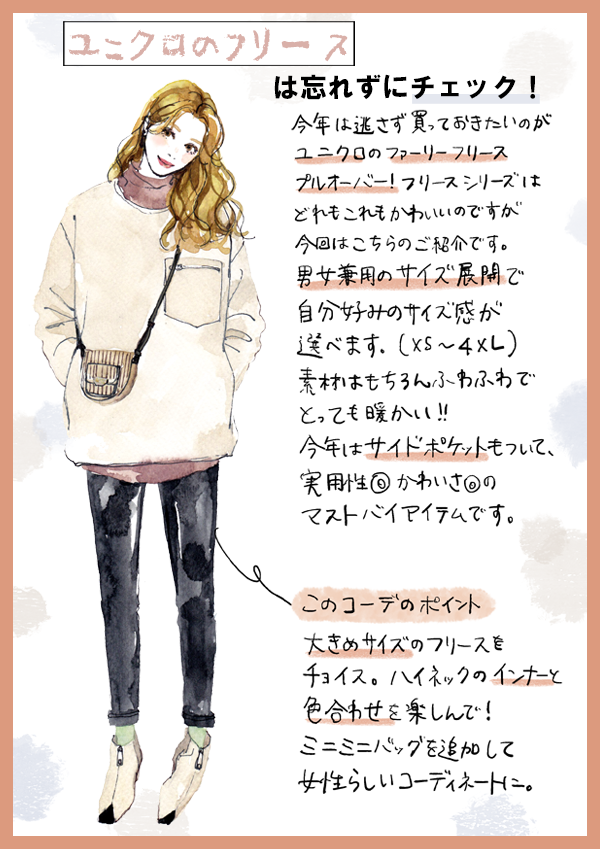 ユニクロのフリース
は忘れずにチェック！
今年は逃さず買っておきたいのが
ユニクロのファーリーフリース
プルオーバー！フリースシリーズは
どれもこれもかわいいのですが
今回はこちらのご紹介です。
男女兼用のサイズ展開で
自分好みのサイズ感が
選べます。(XS〜4XL)
素材はもちろんふわふわで
とっても暖かい!!
今年はサイドポケットもついて、
実用性◎かわいさ◎の
マストバイアイテムです。
このコーデのポイント
大きめサイズのフリースを
チョイス。ハイネックのインナーと
色合わせを楽しんで！
ミニミニバッグを追加して
女性らしいコーディネートに。